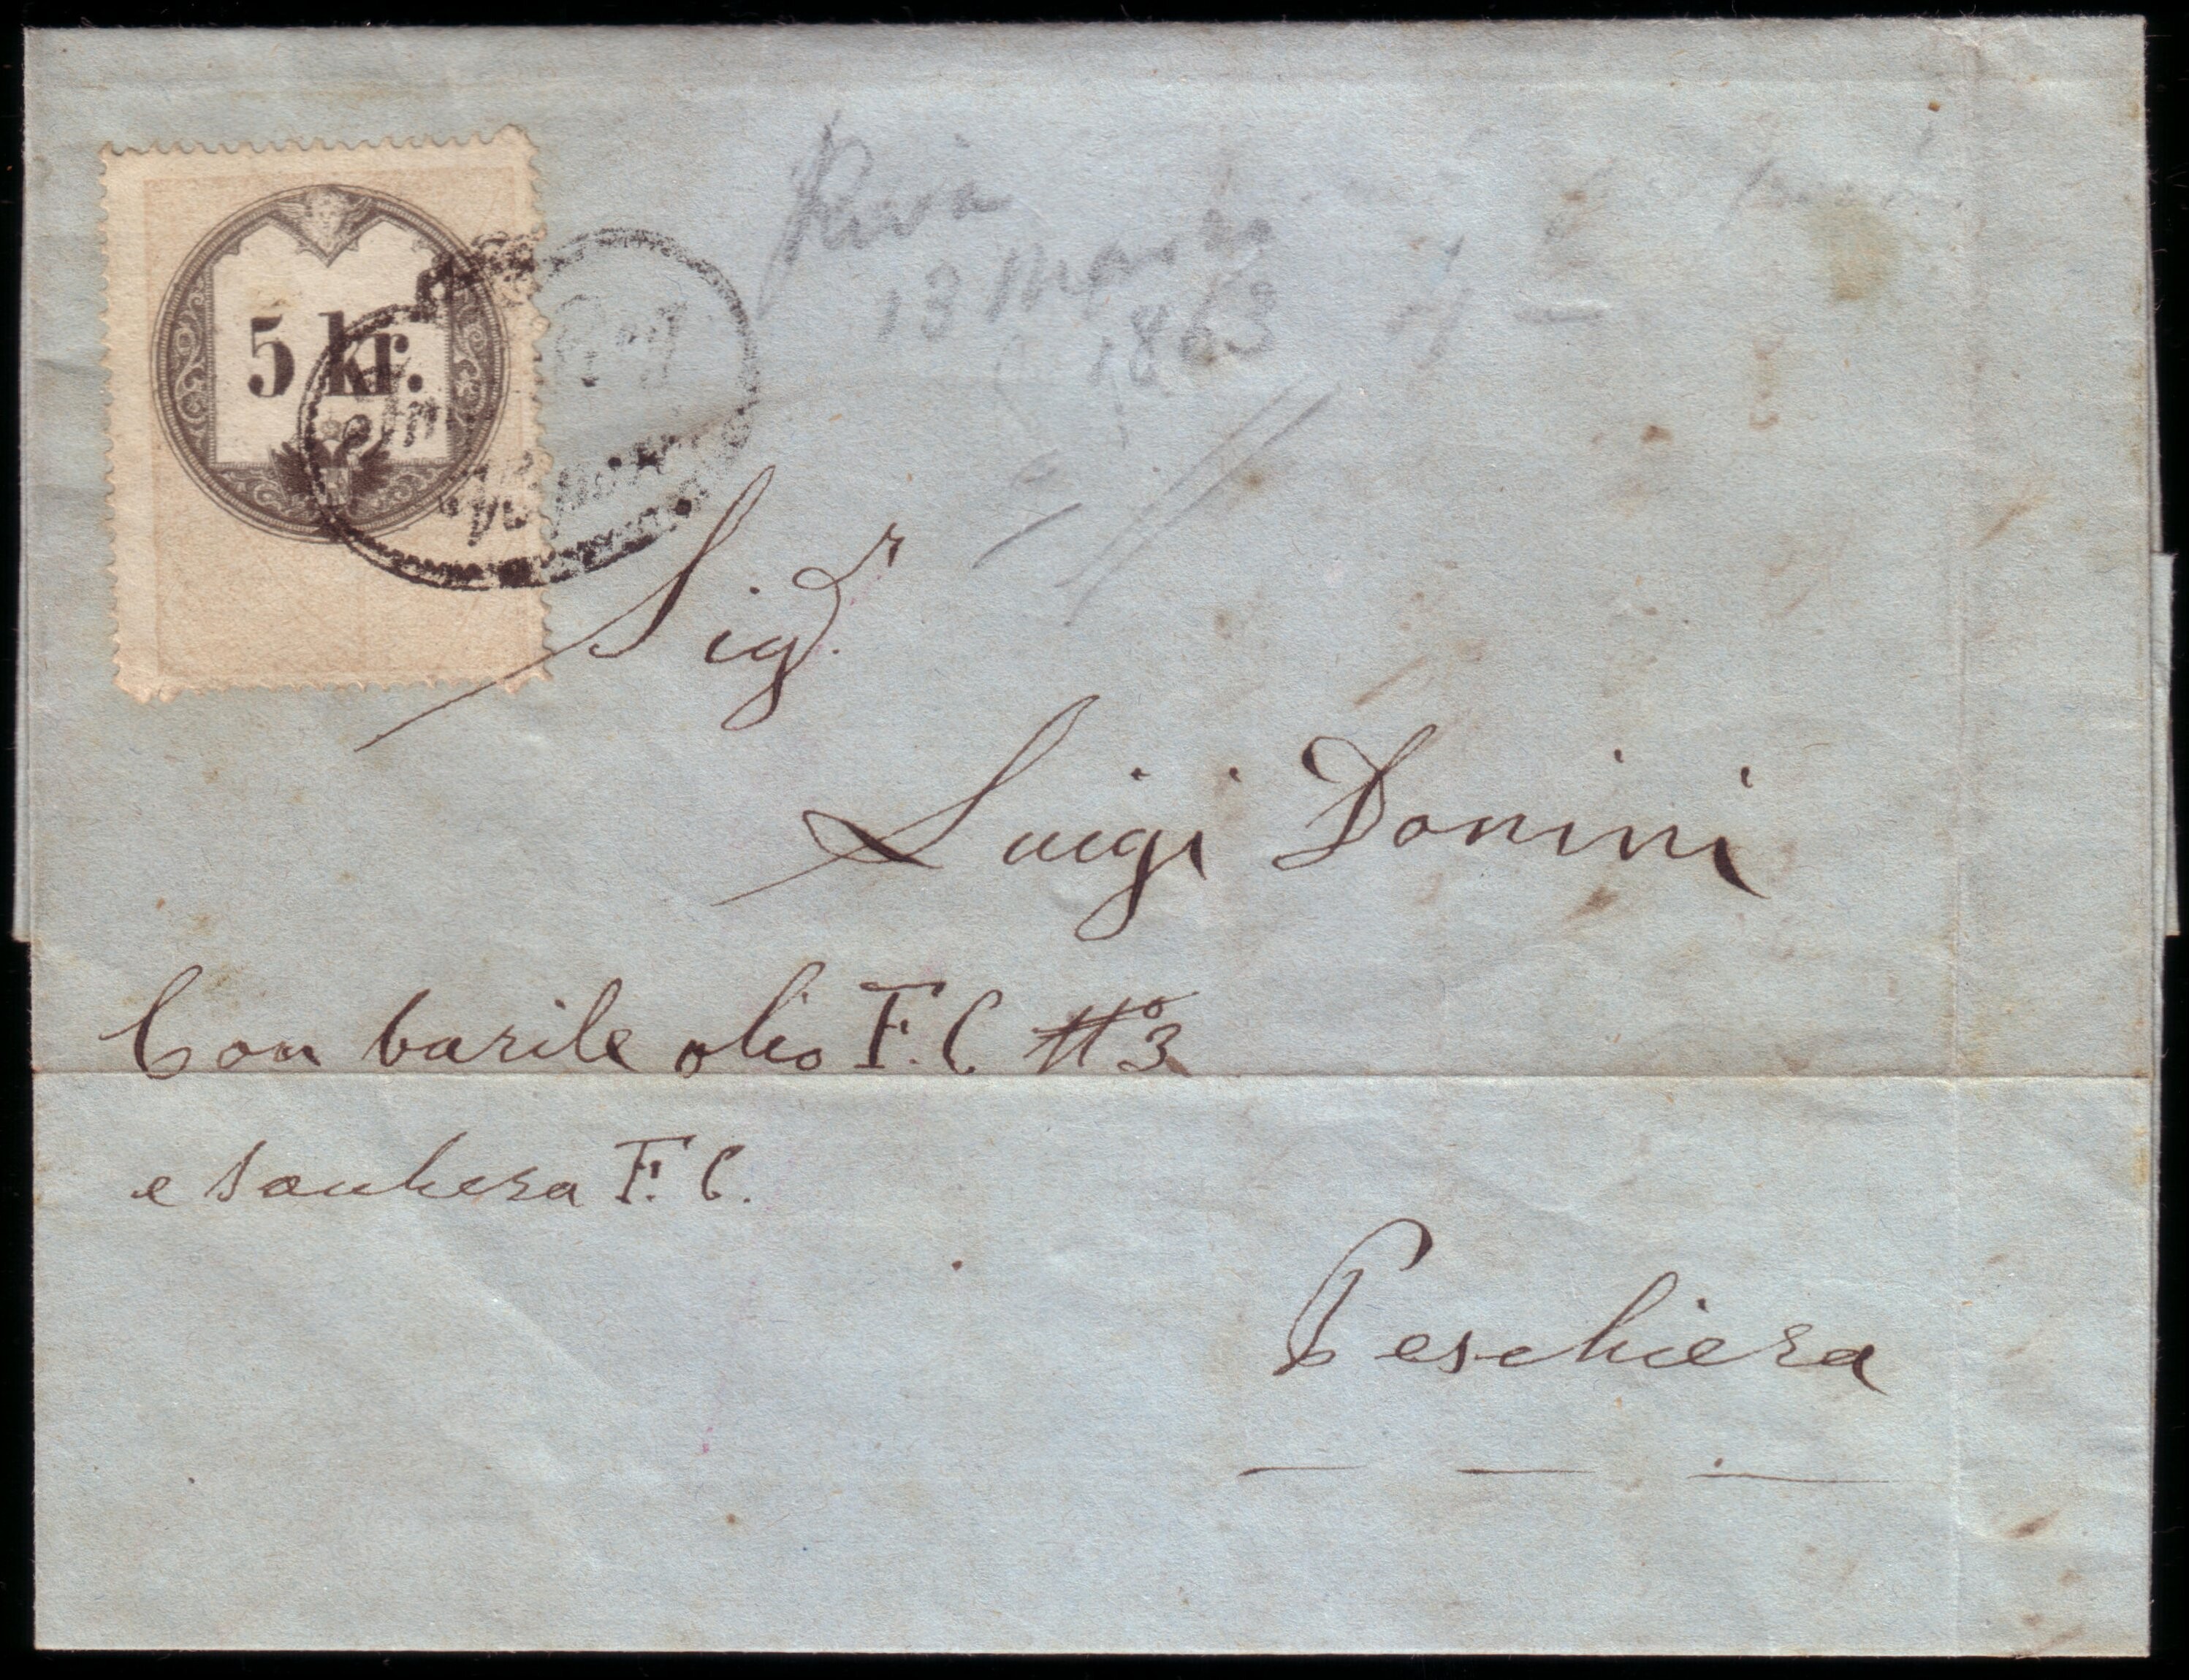 5 kr.
Riva
13 Marzo
1863
Sigr.
Luigi Donini
Con barile olio F. C. No 3
e Sankera F. C.
Peschiera